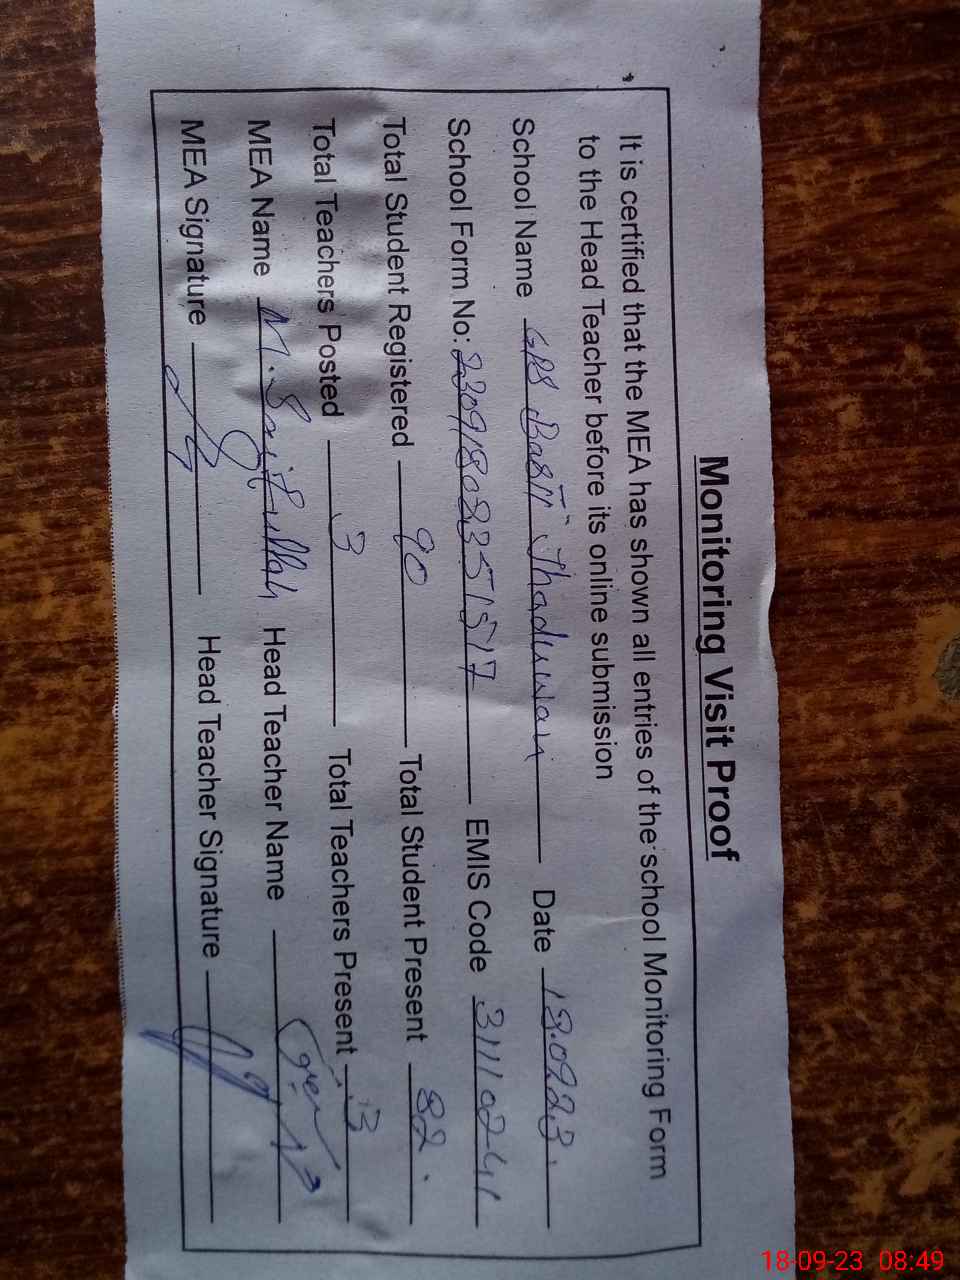 Monitoring Visit Proof
It is certified that the MEA has shown all entries of the school Monitoring Form
to the Head Teacher before its online submission
School Name GPS Basti Jhaduwali Date 18.09.23.
School Form No: 23091808351517 EMIS Code 31110241
Total Student Registered 90 Total Student Present 82.
Total Teachers Posted 3 Total Teachers Present 3
MEA Name M. Saifullah Head Teacher Name
MEA Signature Head Teacher Signature
18-09-23 08:49